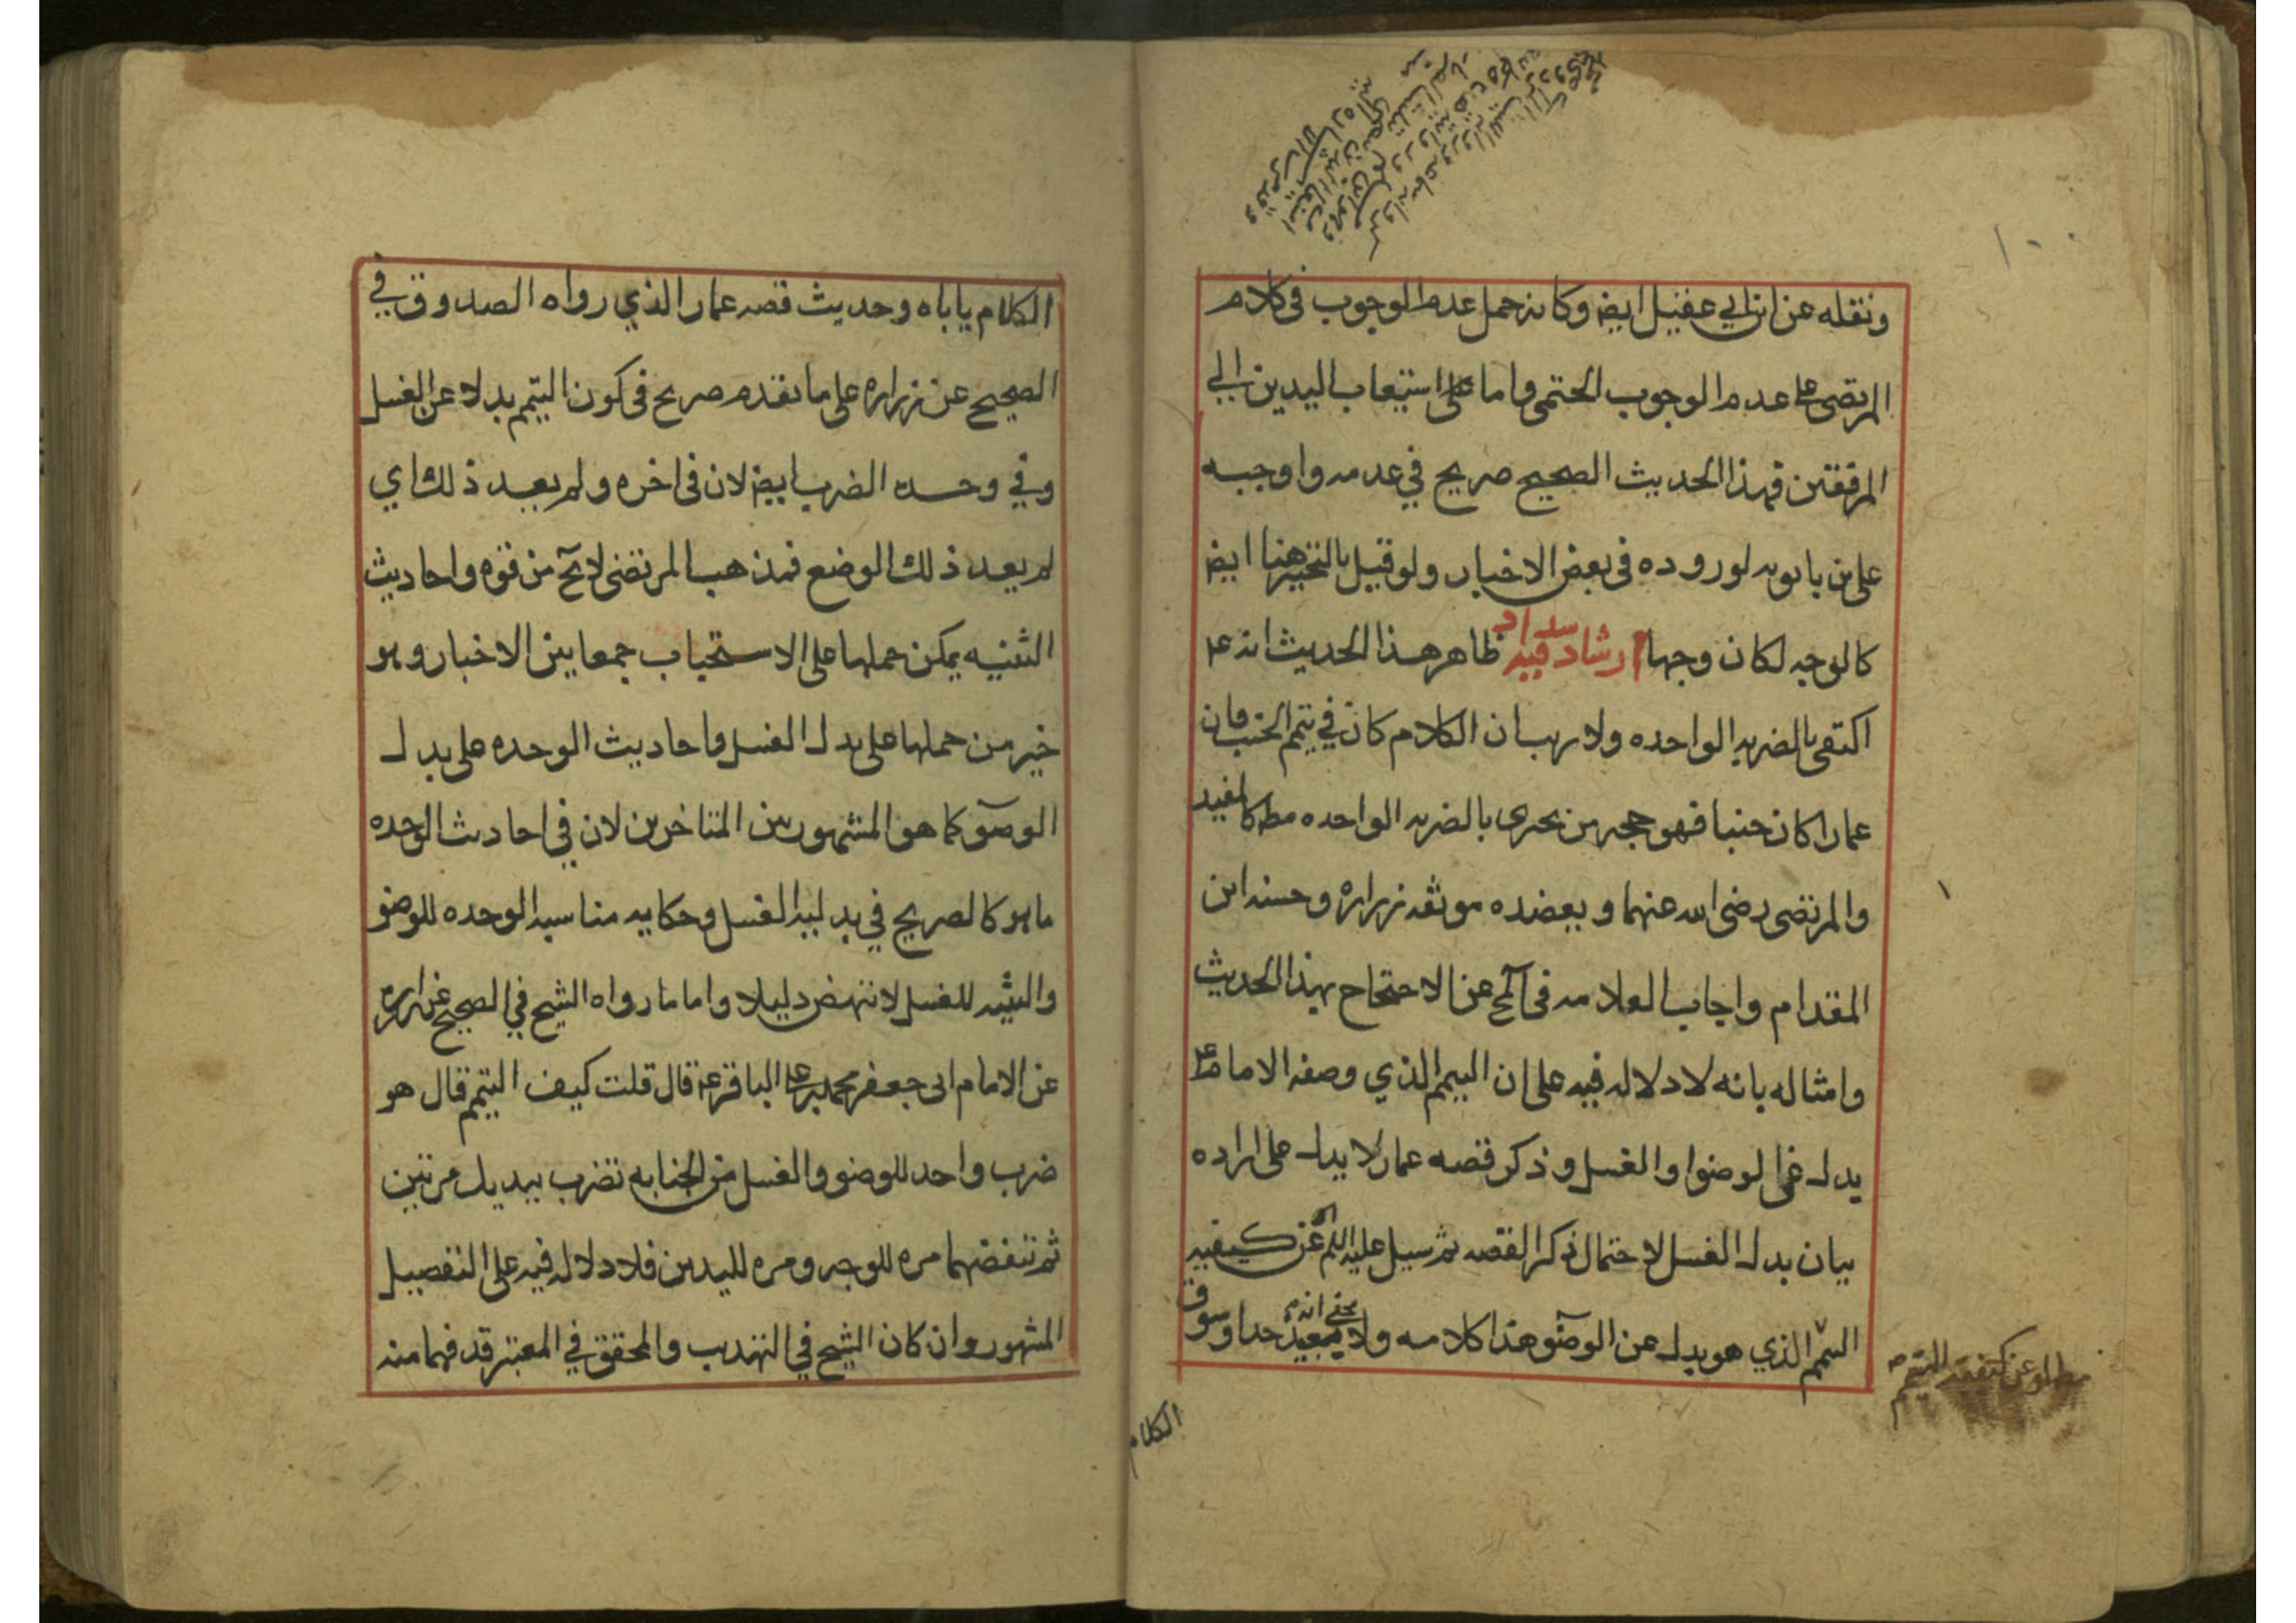 ونقله عن ابن ابي عقيل ايض وكانه حمل عدم الوجوب في كلام
المرتضى على عدم الوجوب الحتمي واما على استيعاب اليدين الى
المرفقين فهذا الحديث الصحيح صريح في عدمه واوجبه
على بن بابويه لوروده في بعض الاخبار ولو قيل بالتخيير هنا ايض
كالوجه لكان وجها ارشاد فيه سداد ظاهر هذا الحديث انه ع
اكتفى بالضربه الواحده ولا ريب ان الكلام كان في تيمم الجنب فان
عمارا كان جنبا فهو حجه من يجرى بالضربه الواحده مط كالمفيد
والمرتضى رضى الله عنهما ويعضده موثقه زراره وحسنه ابن
المقدام واجاب العلامه في المخ عن الاحتجاج بهذا الحديث
وامثاله بانه لا دلاله فيه على ان التيمم الذي وصفه الامام ع
بدل عن الوضوا والغسل وذكر قصه عمار لا يدل على اراده
بيان بدل الغسل لاحتمال ذكر القصه ثم سيل عليه السلم عن كيفيه
التيمم الذي هو بدل عن الوضو هذا كلامه ولا يخفى انه بعيد جدا وسوق
الكلام
الكلام ياباه وحديث قصه عمار الذي رواه الصدوق في
الصحيح عن زراره على ما تقدم صريح في كون التيمم بدلا عن الغسل
وفي وحده الضرب ايض لان في اخره ولم يعد ذلك اي
لم يعد ذلك الوضع فمذهب المرتضى لا يخ من قوه واحاديث
التثنيه يمكن حملها على الاستحباب جمعا بين الاخبار وهو
خير من حملها على بدل الغسل واحاديث الوحده على بدل
الوضو كما هو المشهور بين المتاخرين لان في احاديث الوحده
ما هو كالصريح في بدليه الغسل وحكايه مناسبه الوحده للوضو
والتثنيه للغسل لا تنهض دليلا واما ما رواه الشيخ في الصحيح عن زراره
عن الامام ابى جعفر محمد بن على الباقر ع قال قلت كيف التيمم قال هو
ضرب واحد للوضو والغسل من الجنابه تضرب بيديك مرتين
ثم تنفضهما مره للوجه ومره لليدين فلا دلاله فيه على التفصيل
المشهور وان كان الشيخ في التهذيب والمحقق في المعتبر قد فهما منه